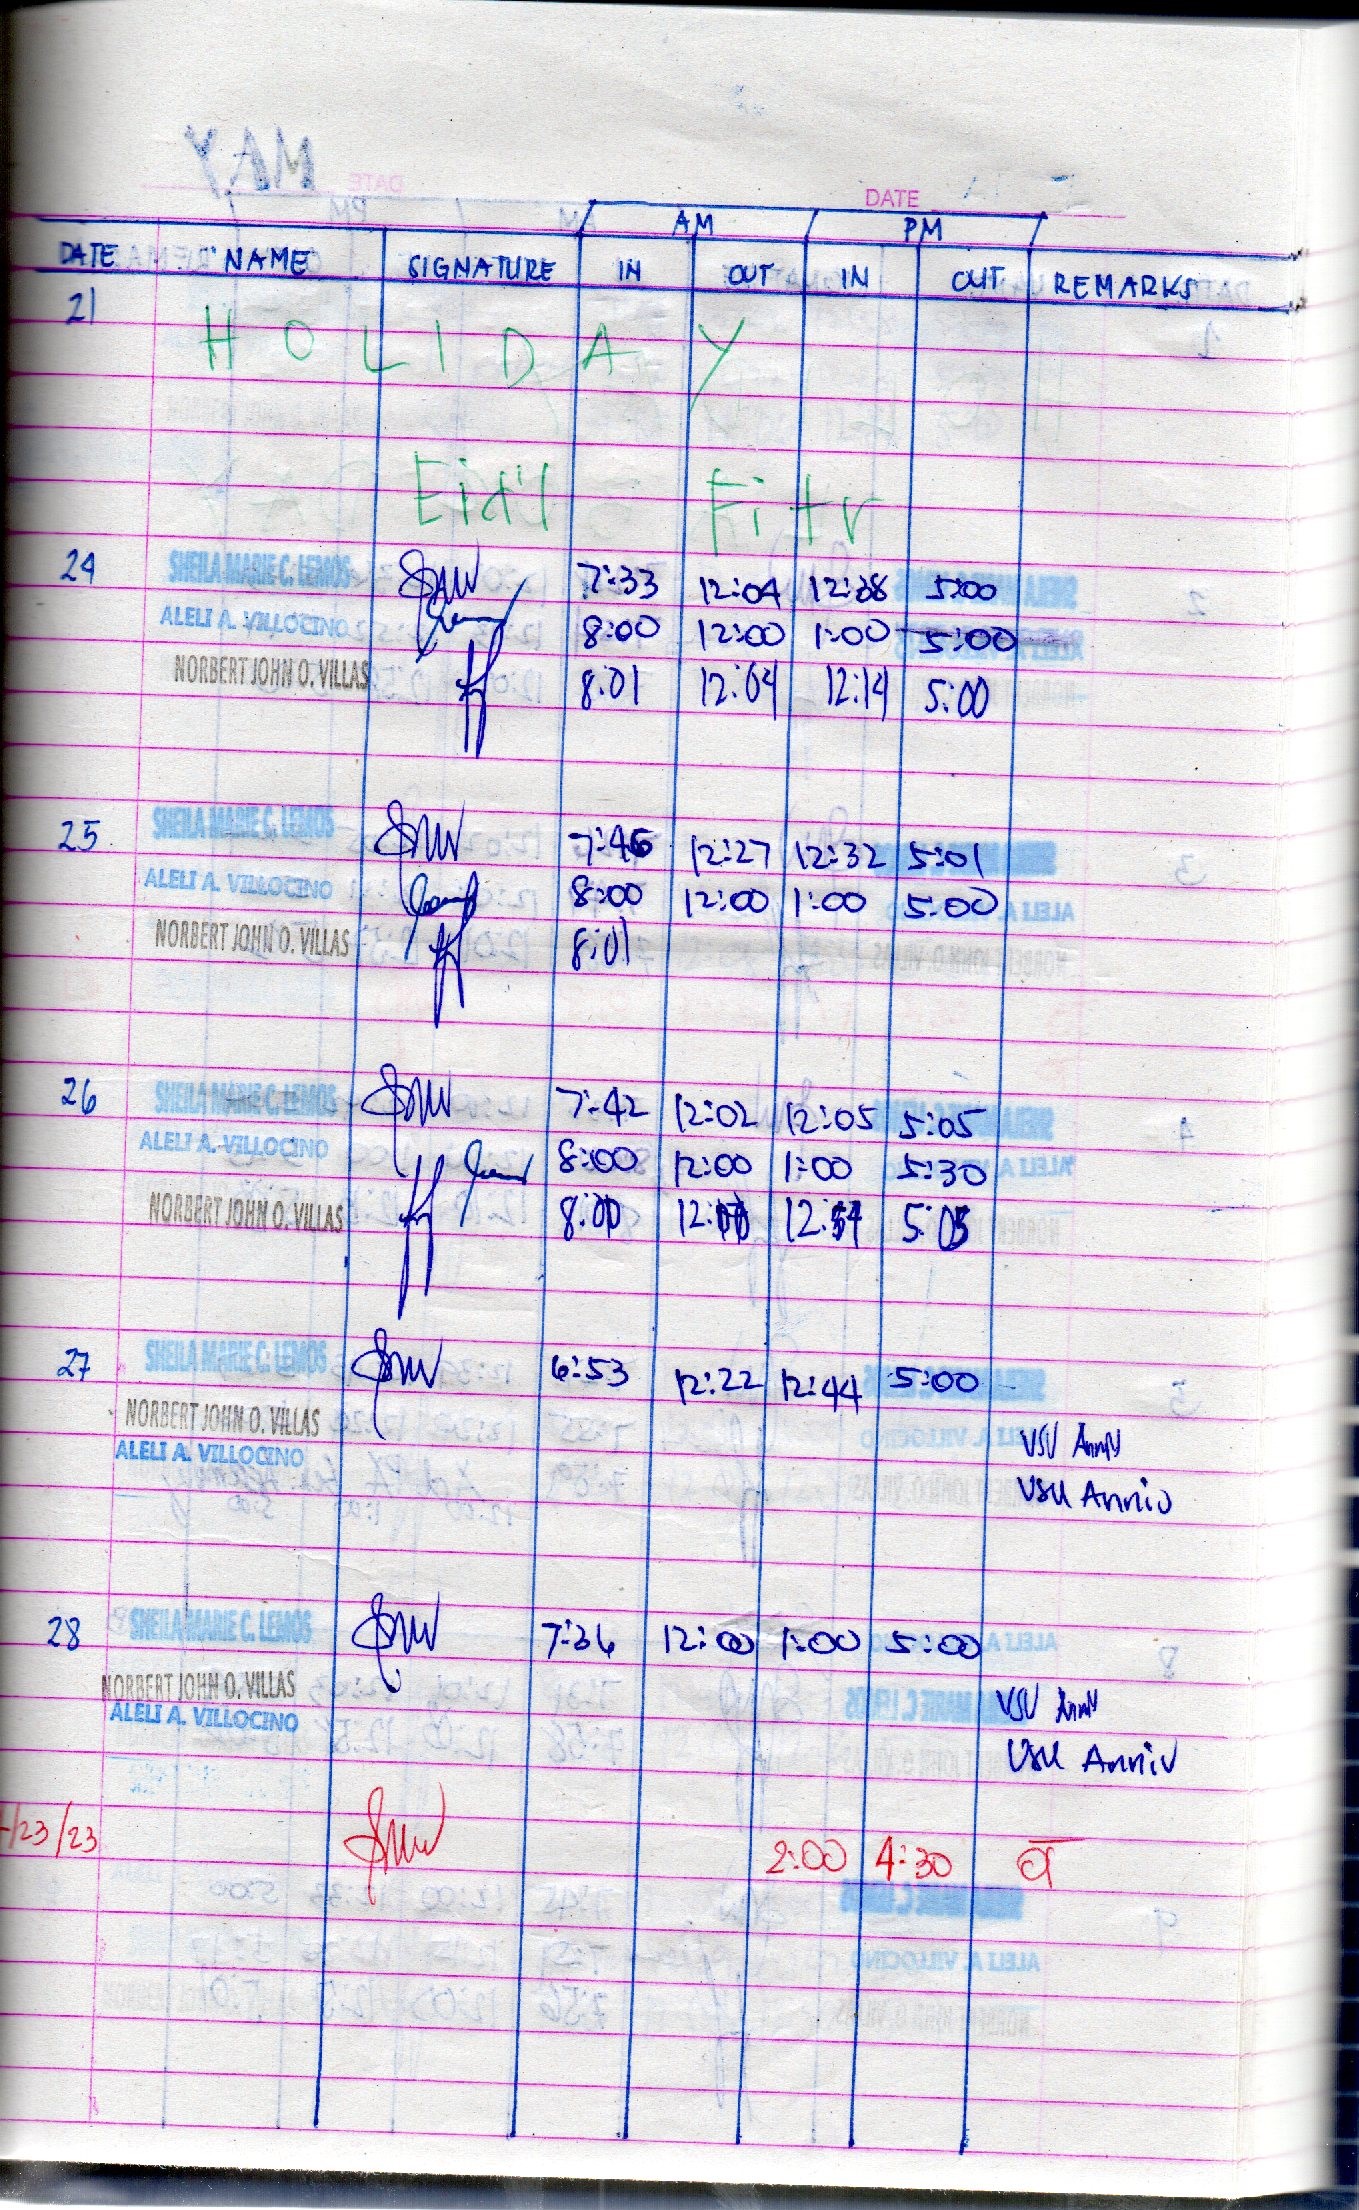 DATE
AM PM
DATE NAME SIGNATURE IN OUT IN OUT REMARKS
21
HOLIDAY
Eid'l Fitr
24 SHEILA MARIE C. LEMOS 7:33 12:04 12:38 5:00
ALELI A. VILLOCINO 8:00 12:00 1:00 5:00
NORBERT JOHN O. VILLAS 8:01 12:04 12:14 5:00
25 SHEILA MARIE C. LEMOS 7:46 12:27 12:32 5:01
ALELI A. VILLOCINO 8:00 12:00 1:00 5:00
NORBERT JOHN O. VILLAS 8:01
26 SHEILA MARIE C. LEMOS 7:42 12:02 12:05 5:05
ALELI A. VILLOCINO 8:00 12:00 1:00 5:30
NORBERT JOHN O. VILLAS 5:05
27 SHEILA MARIE C. LEMOS 6:53 12:22 12:44 5:00
NORBERT JOHN O. VILLAS VSU Anniv
ALELI A. VILLOCINO VSU Anniv
28 SHEILA MARIE C. LEMOS 7:36 12:00 1:00 5:00
NORBERT JOHN O. VILLAS VSU Anniv
ALELI A. VILLOCINO VSU Anniv
/23/23 2:00 4:30 OT